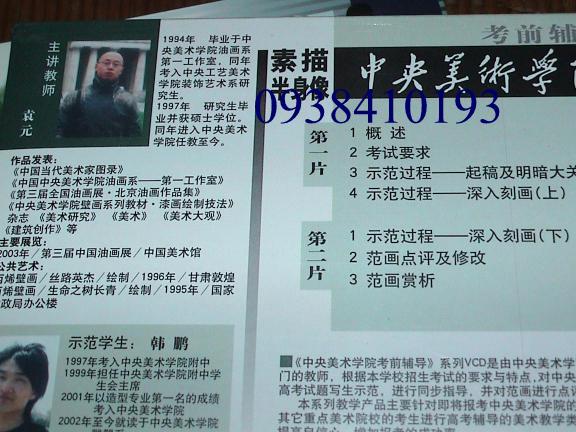 考前辅
主讲教师
袁元
1994年 毕业于中
央美术学院油画系
第一工作室。同年
考入中央工艺美术
学院装饰艺术系研
究生。
1997年 研究生毕
业并获硕士学位。
同年进入中央美术
学院任教至今。
作品发表：
《中国当代美术家图录》
《中国中央美术学院油画系——第一工作室》
《第三届全国油画展·北京油画作品集》
《中央美术学院壁画系列教材·漆画绘制技法》
杂志 《美术研究》 《美术》 《美术大观》
《建筑创作》等
主要展览：
2003年／第三届中国油画展／中国美术馆
公共艺术：
丙烯壁画／丝路英杰／绘制／1996年／甘肃敦煌
丙烯壁画／生命之树长青／绘制／1995年／国家
政局办公楼
示范学生： 韩 鹏
1997年考入中央美术学院附中
1999年担任中央美术学院附中学
生会主席
2001年以造型专业第一名的成绩
考入中央美术学院
2002年至今就读于中央美术学院
素描
半身像
中央美術學
0938410193
第一片
1 概 述
2 考试要求
3 示范过程——起稿及明暗大关
4 示范过程——深入刻画(上)
第二片
1 示范过程——深入刻画(下)
2 范画点评及修改
3 范画赏析
《中央美术学院考前辅导》系列VCD是由中央美术学
门的教师，根据本学校招生考试的要求与特点，对中央
高考试题写生示范，进行同步指导，并对范画进行点评
本系列教学产品主要针对即将报考中央美术学院的
其它重点美术院校的考生进行高考辅导的美术教学类